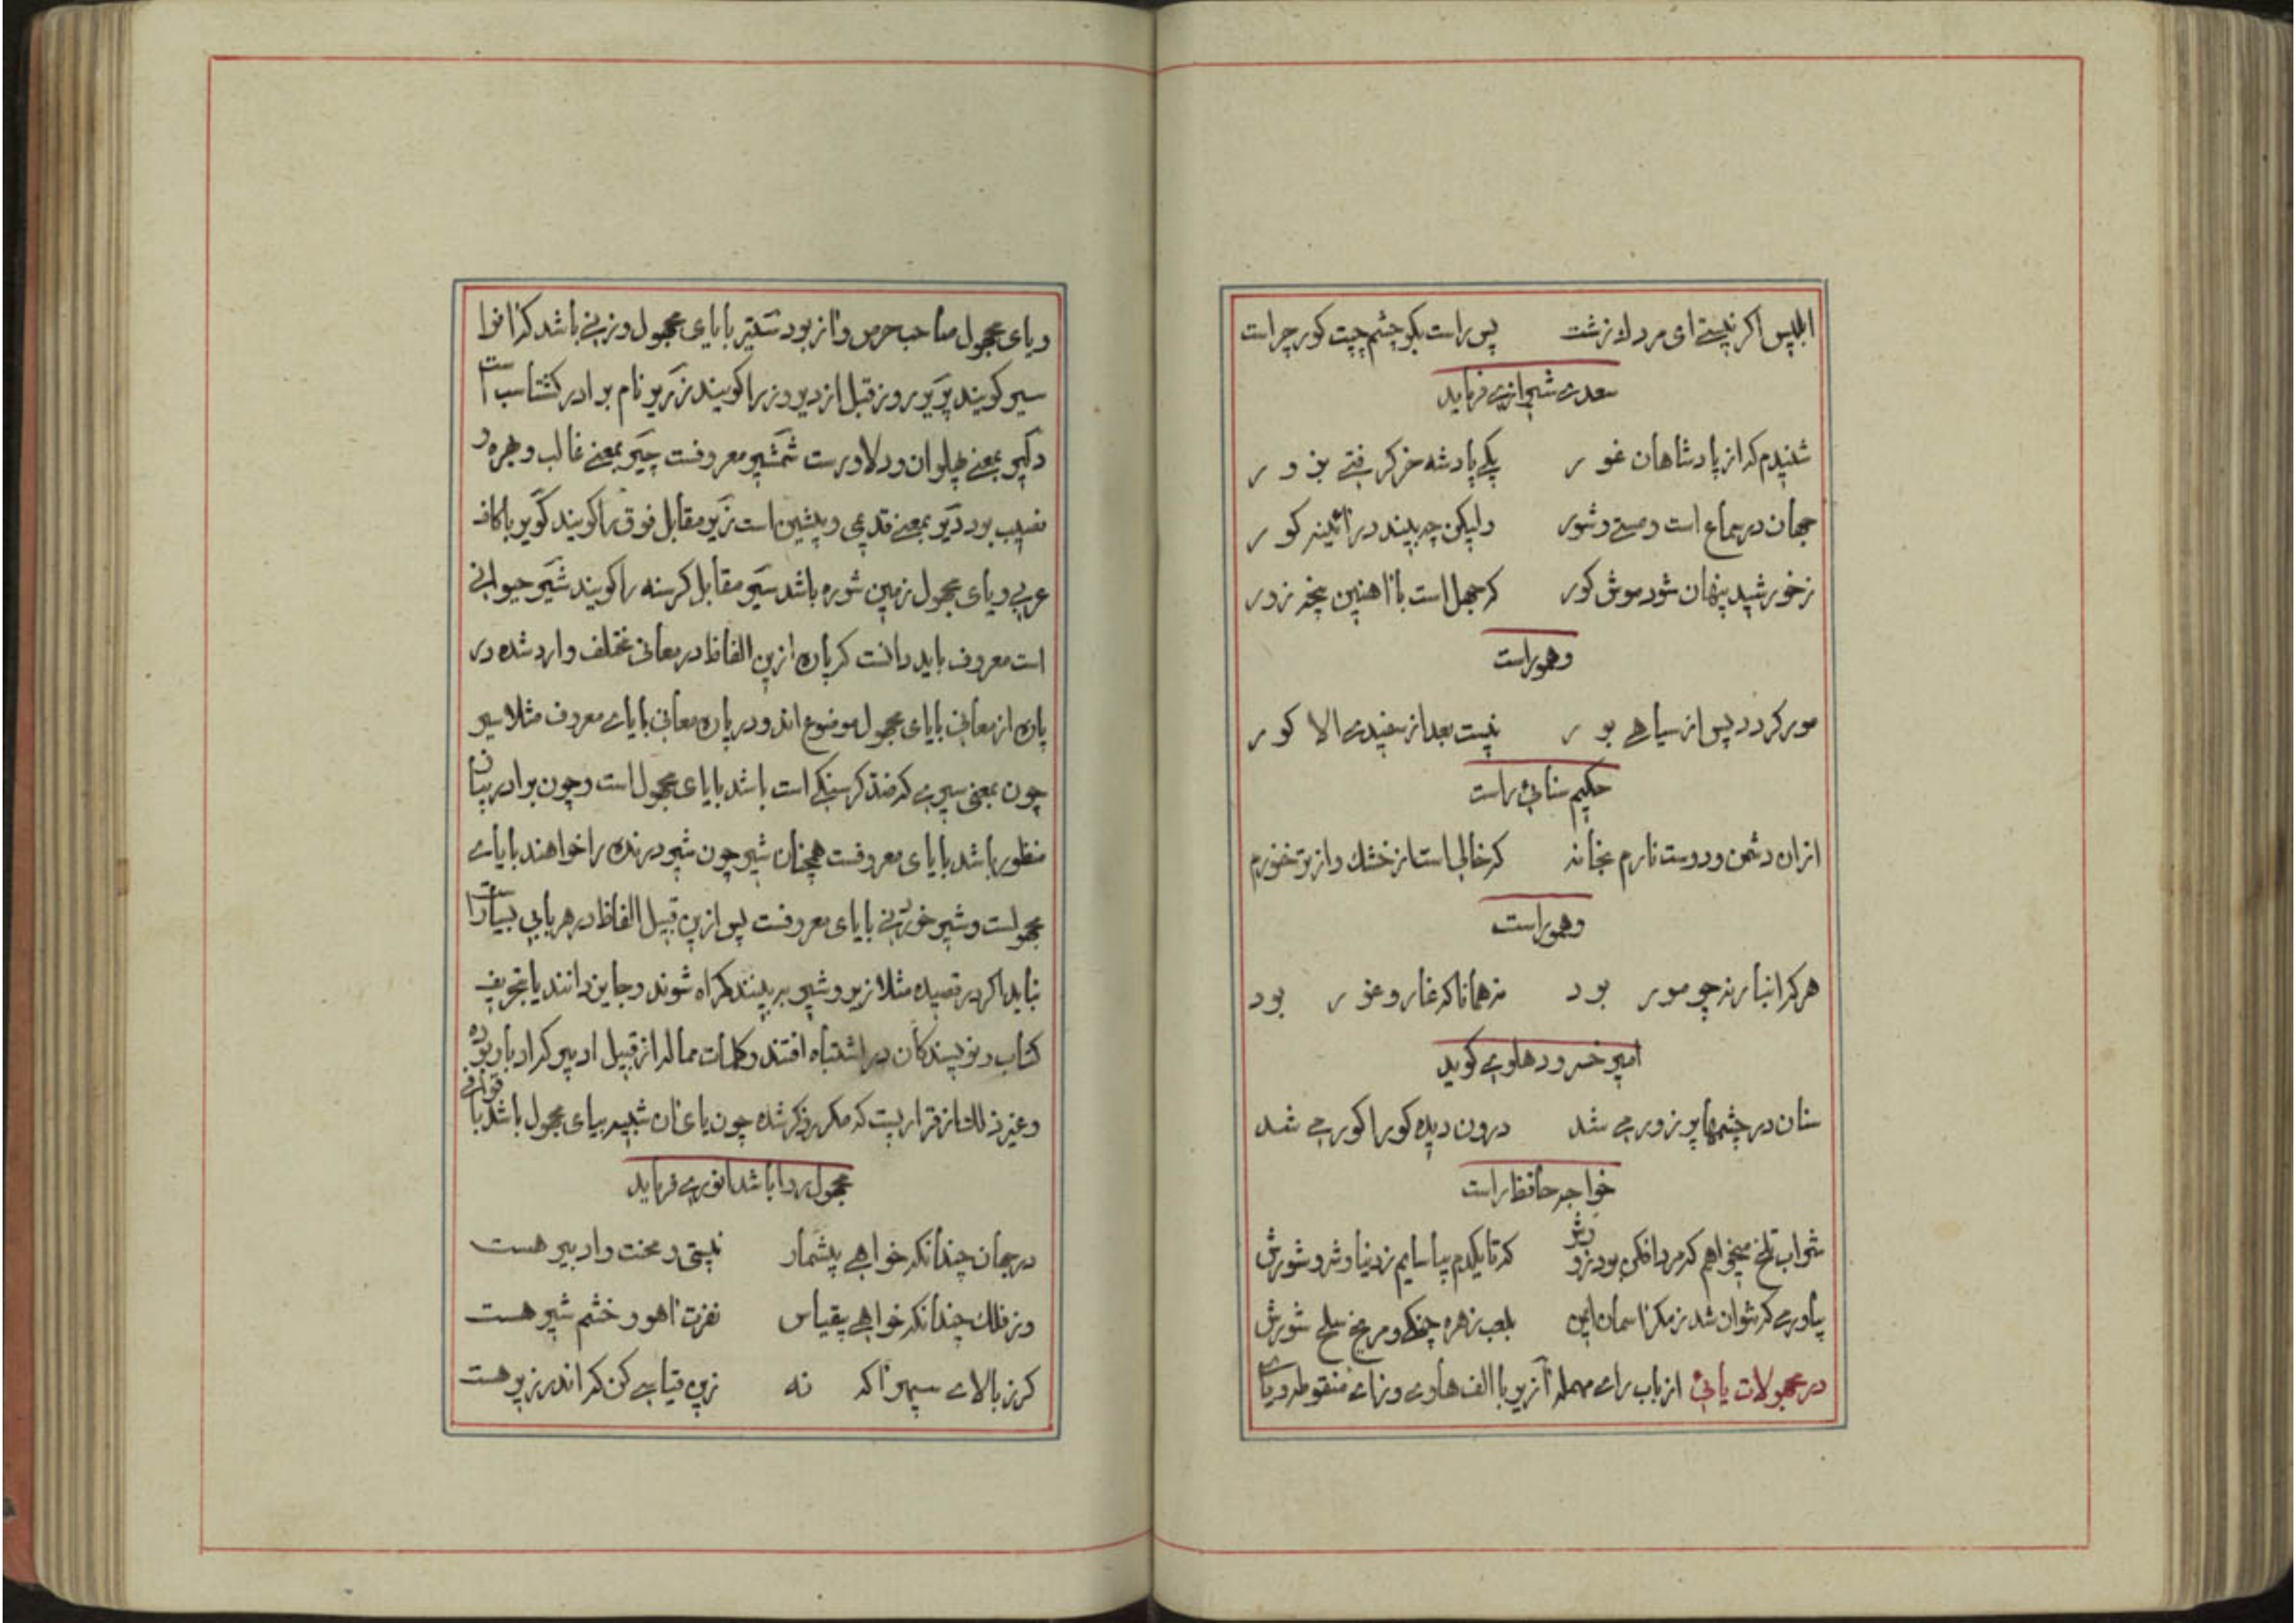 ابلیس اگر نیستی ای مردک زشت پس راست بگو چشم چپت کور چراست
سعدی شیرازی فرماید
شنیدم که از پادشاهان غور یکی پادشه خر گرفتی بزور
جهان در سماع است و مستی و شور ولیکن چه بیند در آئینه کور
ز خورشید پنهان شود موش کور که جهل است با آهنین پنجه زور
وهوراست
مور گردد پس از سیاهی بور نیست بعد از سفیدی الا کور
حکیم سنائی راست
ازان دشمن و دوست نارم بخانه که خالی است از خشک و از تر تنورم
وهوراست
هر که را انبار نه چو مور بود نه همانا که غار و غور بود
امیر خسرو دهلوی گوید
سنان در چشمها پر زور می شد درون دیده کورا کور می شد
خواجه حافظ راست
شراب تلخ میخواهم که مرد افکن بود زورش که تا یکدم بیاسایم ز دنیا و شر و شورش
بیاور می که نتوان شد ز مکر آسمان ایمن بلعب زهره چنگی و مریخ سلح شورش
در مجهولات یائی از باب رای مهمله آزیر با الف هاوی و زای منقوطه و یای
و یای مجهول صاحب حرص و آز بود ستیر با یای مجهول وزنی باشد که آنرا
سیر گویند پریر روز قبل از دیروز را گویند زریر نام برادر گشتاسب است
دلیر بمعنی پهلوان و دلاورست شمشیر معروفست چیر بمعنی غالب و بهره و
نصیب بود دیر بمعنی قدیمی و پیشین است زیر مقابل فوق را گویند گویر با کاف
عربی و یای مجهول زمین شوره باشد سیر مقابل گرسنه را گویند شیر حیوانی
است معروف باید دانست که پاره ازین الفاظ در معانی مختلف وارد شده در
پاره از معانی با یای مجهول موضوع اند و در پاره معانی با یای معروف مثلا سیر
چون بمعنی سیری که ضد گرسنگی است باشد با یای مجهول است و چون برادر پیاز
منظور باشد با یای معروفست همچنان شیر چون شیر درنده را خواهند با یای
مجهولست و شیر خوردنی با یای معروفست پس ازین قبیل الفاظ در هر بابی بسیار است
نباید اگر در قصیده مثلا زیر و شیر بر بینند گمراه شوند و جایز دانند یا بتحریف
کتاب و نویسندگان در اشتباه افتند و کلمات مماله از قبیل ادبیر که ادبار بوده
و غیر ذلک از قراریست که مکرر ذکر شده چون یای آن شبیه بیای مجهول باشد با قوافی
مجهول روا باشد انوری فرماید
در جهان چندانکه خواهی بیشمار نیستی و محنت و ادبیر هست
وز فلک چندانکه خواهی بیقیاس نفرت آهو و خشم شیر هست
گر ز بالای سپهر آگه نه زین قیاسی کن که اندر زیر هست